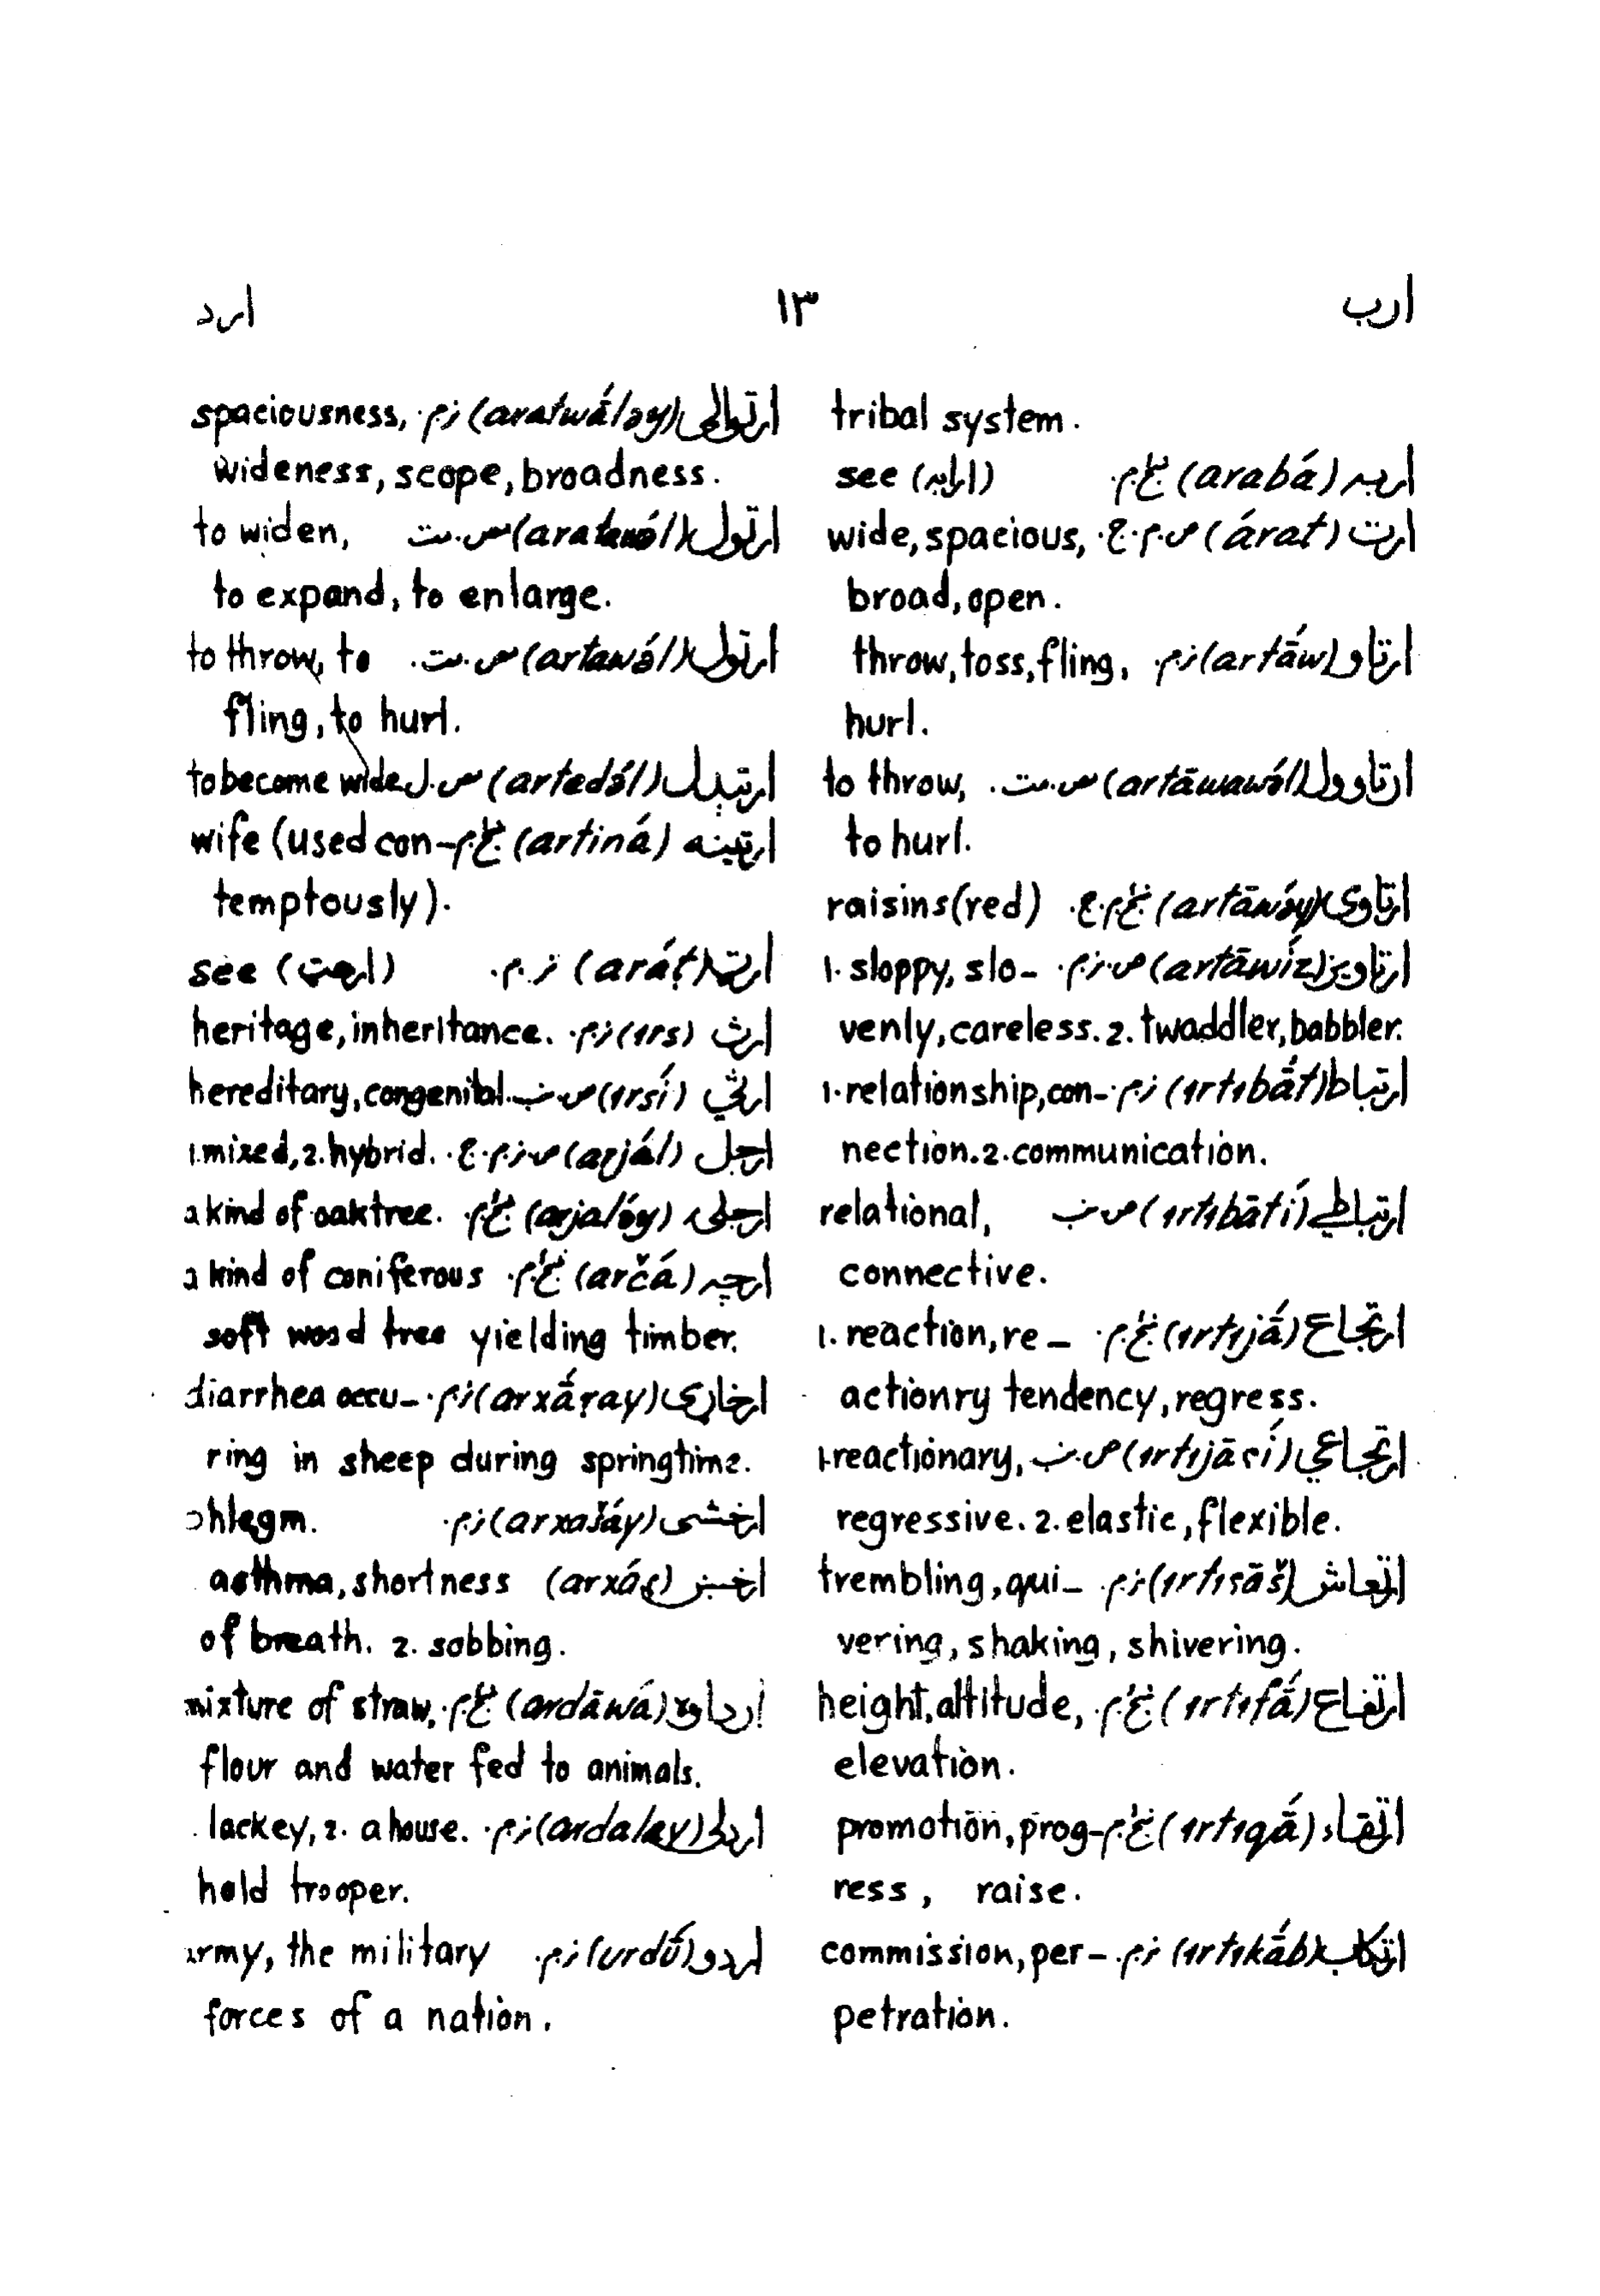 ارب ۱۳ ارد
tribal system.
اربه (arabá) see
ارت (árat) ص.م.ج. wide, spacious,
broad, open.
ارتاو (artā́w) ز.م. throw, toss, fling,
hurl.
ارتاوول (artāwawə́l) ص.مت. to throw,
to hurl.
ارتاوۍ (artāwə́y) raisins (red)
ارتاويز (artāwíz) ص.ز.م. 1. sloppy, slo-
venly, careless. 2. twaddler, babbler.
ارتباط (ırtıbā́t) ز.م. 1. relationship, con-
nection. 2. communication.
ارتباطي (ırtıbātí) ص.نب. relational,
connective.
ارتجاع (ırtıjā́) 1. reaction, re-
actionry tendency, regress.
ارتجاعي (ırtıjāʕí) ص.نب. 1. reactionary,
regressive. 2. elastic, flexible.
ارتعاش (ırtıʕāš) ز.م. trembling, qui-
vering, shaking, shivering.
ارتفاع (ırtıfā́) height, altitude,
elevation.
ارتقاء (ırtıqā́) promotion, prog-
ress, raise.
ارتکاب (ırtıkā́b) ز.م. commission, per-
petration.
ارتوالی (aratwā́ləy) ز.م. spaciousness,
wideness, scope, broadness.
ارتول (aratawə́l) ص.مت. to widen,
to expand, to enlarge.
ارتول (artawə́l) ص.مت. to throw, to
fling, to hurl.
ارتېدل (artedə́l) ص.ل. to become wide
ارتينه (artiná) wife (used con-
temptously).
ارټ (aráṭ) ز.م. see (ارهټ)
ارث (ırs) ز.م. heritage, inheritance.
ارثي (ırsí) ص.نب. hereditary, congenital.
ارجل (arjál) ص.ز.م.ج. 1. mixed, 2. hybrid.
ارجلۍ (arjalə́y) a kind of oak tree.
ارچه (arčá) a kind of coniferous
soft wood tree yielding timber.
ارخاړی (arxā́ṛay) ز.م. diarrhea occu-
ring in sheep during springtime.
ارخشی (arxašáy) ز.م. phlegm.
(arxáǵ) asthma, shortness
of breath. 2. sobbing.
ارداوه (ardāwá) mixture of straw,
flour and water fed to animals.
اردلی (ardalay) ز.م. lackey, 2. a house.
hold trooper.
اردو (urdú) ز.م. army, the military
forces of a nation.